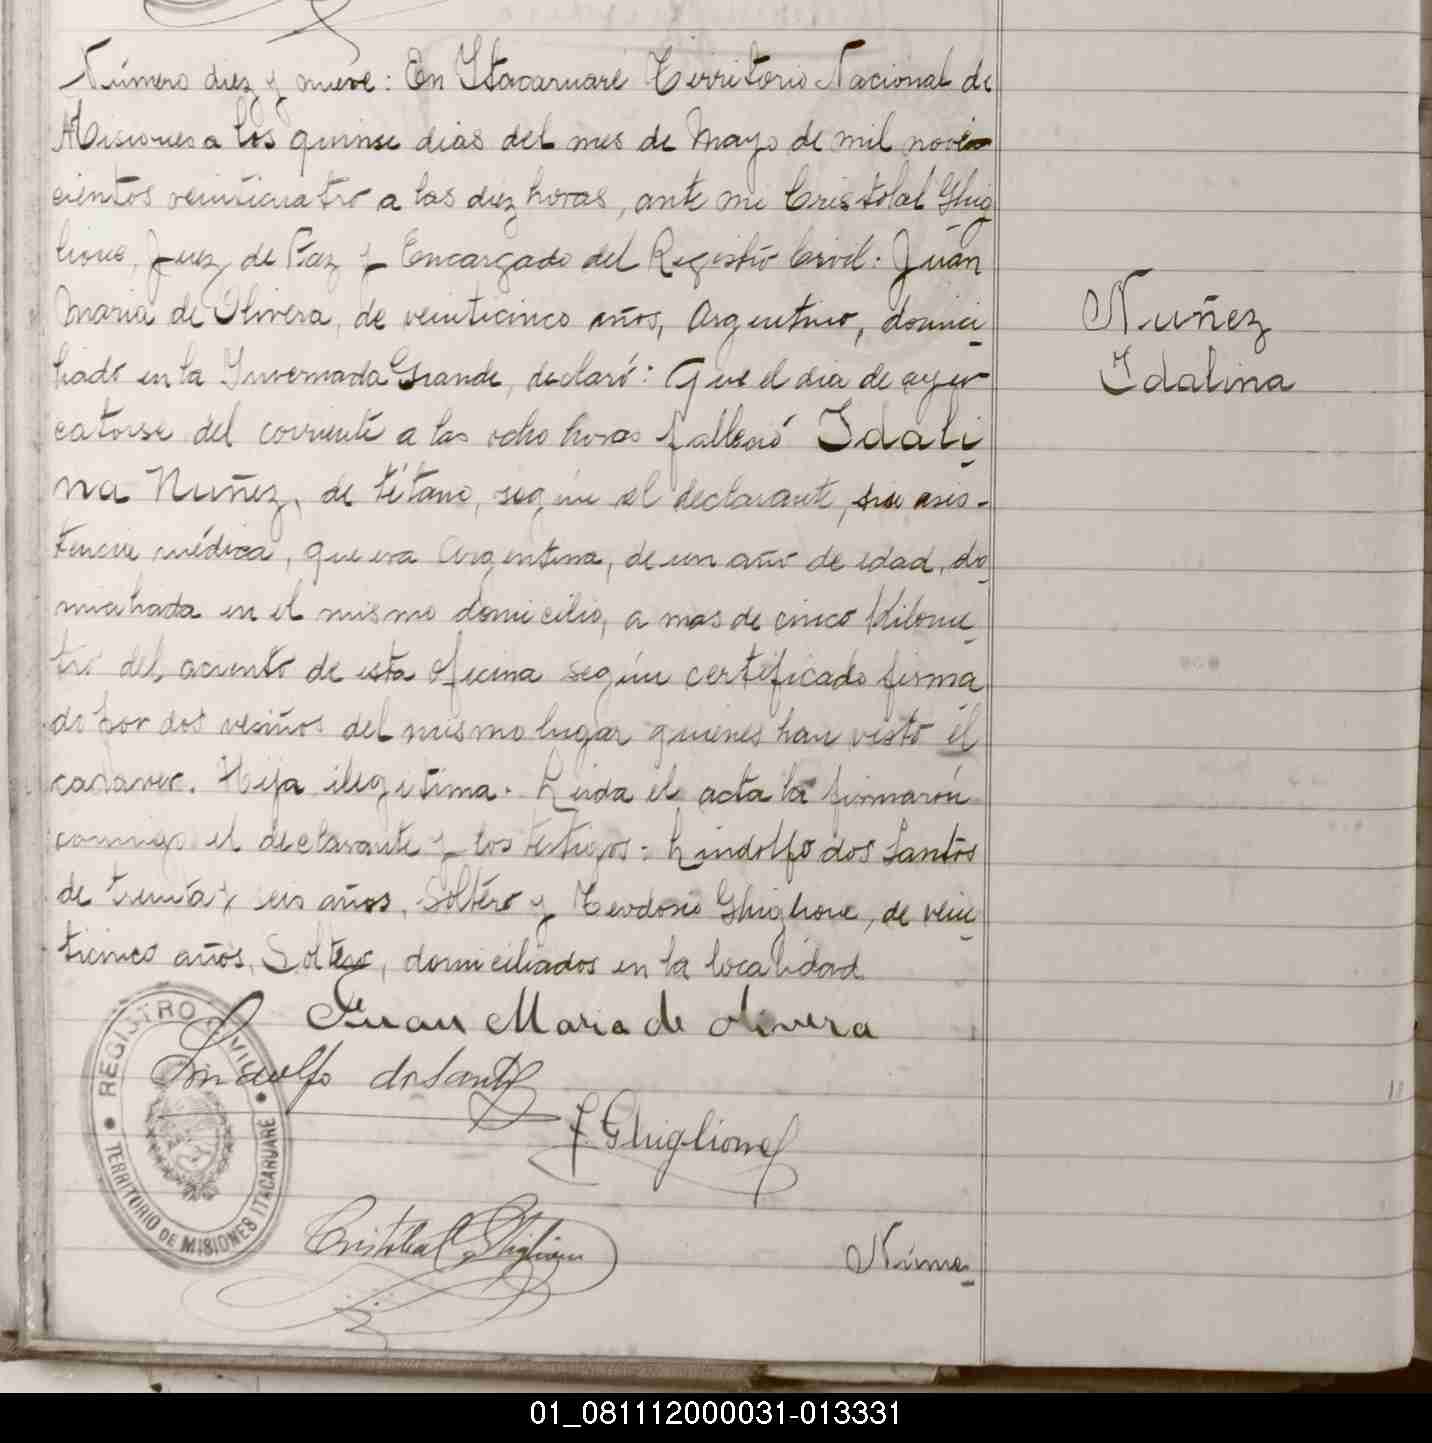 Número diez y nueve: En Itacaruaré Territorio Nacional de
Misiones a los quinse dias del mes de Mayo de mil nove-
cientos veinticuatro a las diez horas, ante mi Cristobal Ghig
lione, Juez de Paz y Encargado del Registro Civil: Juan
Maria de Olivera, de veinticinco años, Argentino, domici-
liado en la Invernada Grande, declaró: Que el dia de ayer
catorse del corriente a las ocho horas falleció Idali-
na Nuñez, de tétano, según el declarante, sin asis-
tencia médica, que era Argentina, de un año de edad, do-
miciliada en el mismo domicilio, a mas de cinco Kilome-
tro del aciento de esta oficina según certificado firma
do por dos vecinos del mismo lugar quienes han visto el
cadaver. Hija ilegitima. Leida el acta la firmarón
comigo el declarante y los testigos: Lindolfo dos Santos
de treinta y seis años, Soltero y Teodosio Ghiglione, de vein-
ticinco años, Soltero, domiciliados en la localidad
Nuñez
Idalina
Juan Maria de olivera
Lindolfo do Santos
T Ghiglione
Cristobal Ghiglione
Núme-
REGISTRO CIVIL
TERRITORIO DE MISIONES ITACARUARE
01_081112000031-013331